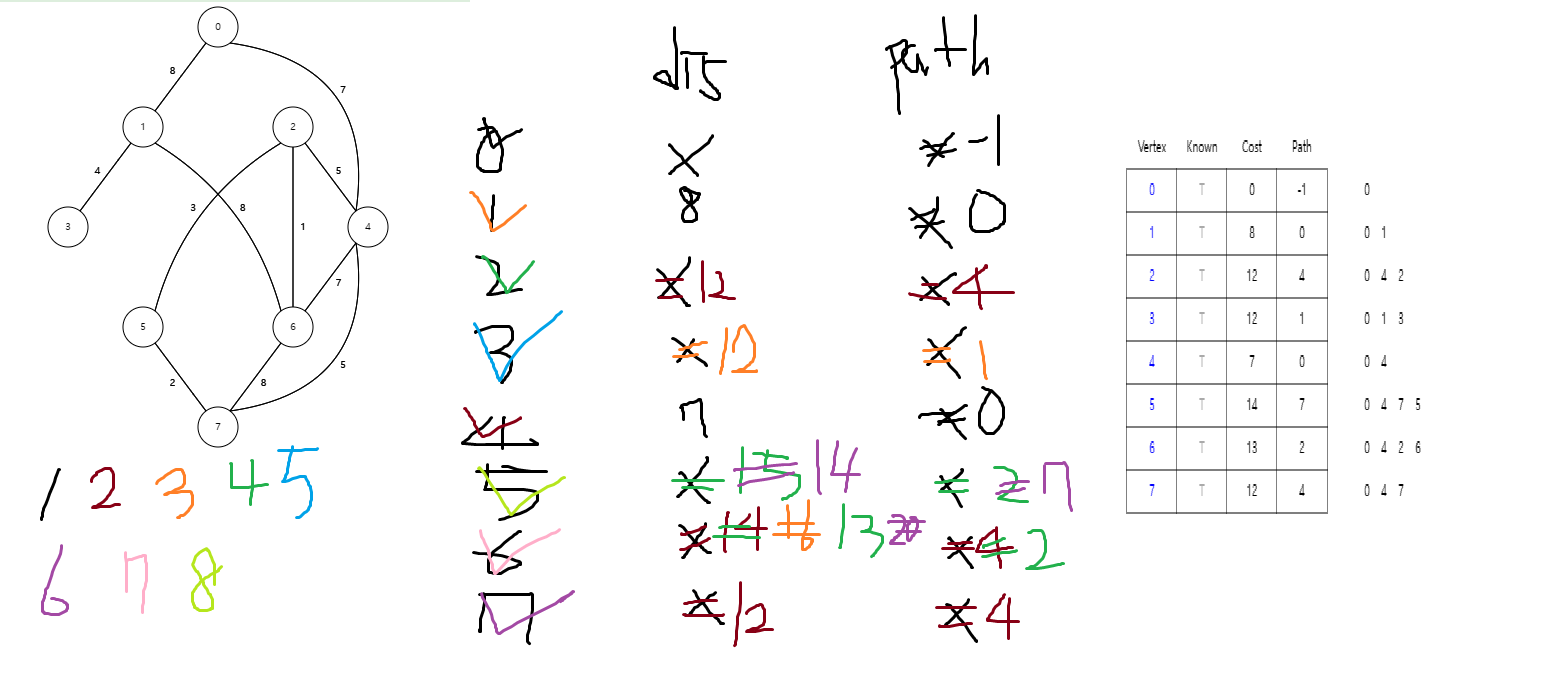 0
8
7
1
2
4
5
3
8
3
1
4
7
5
6
2
8
5
7
1 2 3 4 5
6 7 8
dis path
0 -1
1 8 0
2 12 4
3 12 1
4 7 0
5 15 14 2 7
6 14 16 13 20 4 2
7 12 4
Vertex Known Cost Path
0 T 0 -1 0
1 T 8 0 0 1
2 T 12 4 0 4 2
3 T 12 1 0 1 3
4 T 7 0 0 4
5 T 14 7 0 4 7 5
6 T 13 2 0 4 2 6
7 T 12 4 0 4 7